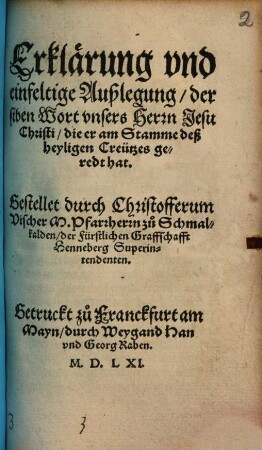 2
Erklärung vnd
einfeltige Außlegung / der
siben Wort vnsers Herrn Jesu
Christi / die er am Stamme deß
heyligen Creützes ge-
redt hat.
Gestellet durch Christofferum
Vischer M. Pfarrherin zů Schmal-
kalden / der Fürstlichen Graffschafft
Henneberg Superin-
tendenten.
Getruckt zů Franckfurt am
Mayn / durch Weygand Han
vnd Georg Raben.
M. D. LXI.
3
3